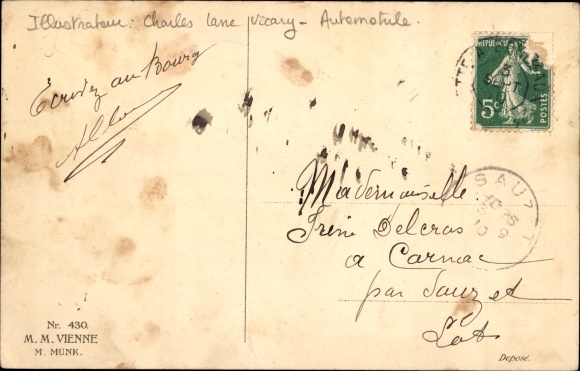 Illustrateur: Charles Lane Vicary - Automobile.
Ecrivez au Bourg
5c
POSTES
SAUZET
Mademoiselle
Irène Delcros
à Carnac
par Sauzet
Lot
Nr. 430.
M. M. VIENNE
M. MUNK.
Déposé.